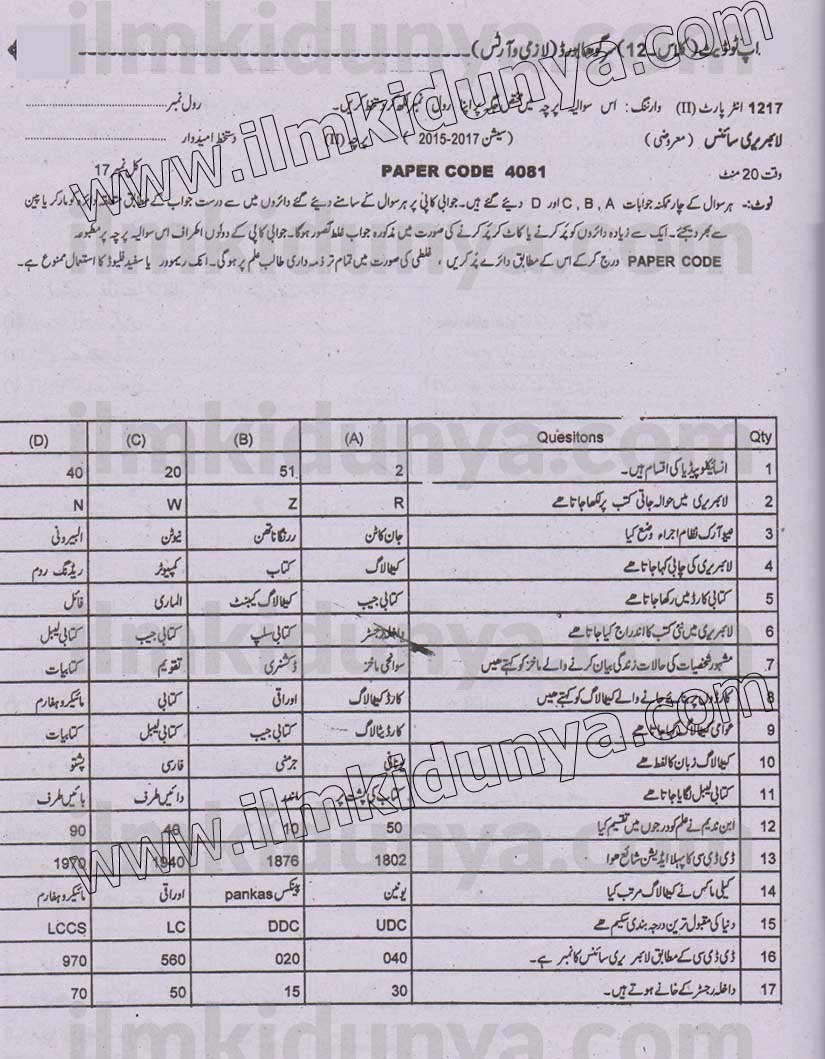 اپ ٹو ڈیٹ (کلاس۔12) سرگودھا بورڈ (لازمی و آرٹس)
1217 انٹر پارٹ (II) وارننگ: اس سوالیہ پرچہ میں مختص جگہ پر اپنا رول نمبر لکھ کر دستخط کریں۔ رول نمبر
لائبریری سائنس (معروضی) (سیشن 2017-2015) پرچہ (II) دستخط امیدوار
وقت 20 منٹ PAPER CODE 4081 کل نمبر 17
نوٹ:۔ ہر سوال کے چار ممکنہ جوابات C, B, A اور D دیئے گئے ہیں۔ جوابی کاپی پر ہر سوال کے سامنے دیئے گئے دائروں میں سے درست جواب کے مطابق متعلقہ دائرہ کو مارکر یا پین
سے بھر دیجئے۔ ایک سے زیادہ دائروں کو پُر کرنے یا کاٹ کر پُر کرنے کی صورت میں مذکورہ جواب غلط تصور ہوگا۔ جوابی کاپی کے دونوں اطراف اس سوالیہ پرچہ پر مطبوعہ
PAPER CODE درج کر کے اس کے مطابق دائرے پُر کریں، غلطی کی صورت میں تمام تر ذمہ داری طالب علم پر ہوگی۔ انک ریموور یا سفید فلیوڈ کا استعمال ممنوع ہے۔
Qty Quesitons (A) (B) (C) (D)
1 انسائیکلوپیڈیا کی اقسام ہیں۔ 2 51 20 40
2 لائبریری میں حوالہ جاتی کتب پر لکھا جاتا ھے R Z W N
3 نیو آرک نظام اجراء وضع کیا جان کاٹن رنگاناتھن نیوٹن البیرونی
4 لائبریری کی چابی کہا جاتا ھے کیٹالاگ کتاب کمپیوٹر ریڈنگ روم
5 کتابی کارڈ میں رکھا جاتا ھے کتابی جیب کیٹالاگ کیبنٹ الماری فائل
6 لائبریری میں نئی کتب کا اندراج کیا جاتا ھے داخلہ رجسٹر کتابی سلپ کتابی جیب کتابی لیبل
7 مشہور شخصیات کی حالات زندگی بیان کرنے والے ماخذ کو کہتے ھیں سوانحی ماخذ ڈکشنری تقویم کتابیات
8 کارڈوں پر بنائے جانے والے کیٹالاگ کو کہتے ھیں کارڈ کیٹالاگ اوراقی کتابی مائیکرو ہفارم
9 عوامی کیٹالاگ کہا جاتا ھے کارڈ یٹالاگ کتابی جیب کتابی لیبل کتابیات
10 کیٹالاگ زبان کا لفظ ھے یونانی جرمنی فارسی پشتو
11 کتابی لیبل لگایا جاتا ھے کتاب کی پشت پر سامنے دائیں طرف بائیں طرف
12 ابن ندیم نے علم کو درجوں میں تقسیم کیا 50 10 40 90
13 ڈی ڈی سی کا پہلا ایڈیشن شائع ھوا 1802 1876 1940 1970
14 کیلی ماکس نے کیٹالاگ مرتب کیا یونین پینکس pankas اوراقی مائیکرو ہفارم
15 دنیا کی مقبول ترین درجہ بندی سکیم ھے UDC DDC LC LCCS
16 ڈی ڈی سی کے مطابق لائبریری سائنس کا نمبر ہے۔ 040 020 560 970
17 داخلہ رجسٹر کے خانے ہوتے ہیں۔ 30 15 50 70
www.ilmkidunya.com
www.ilmkidunya.com
ilmkidunya.com
ilmkidunya.com
ilmkidunya.com
ilmkidunya.com
ilmkidunya.com
ilmkidunya.com